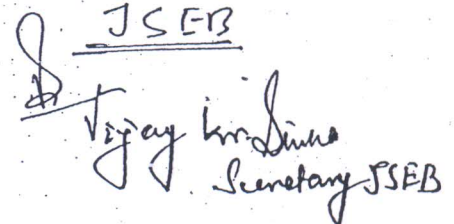 JSEB
Vijay Kr. Sinha
Secretary JSEB